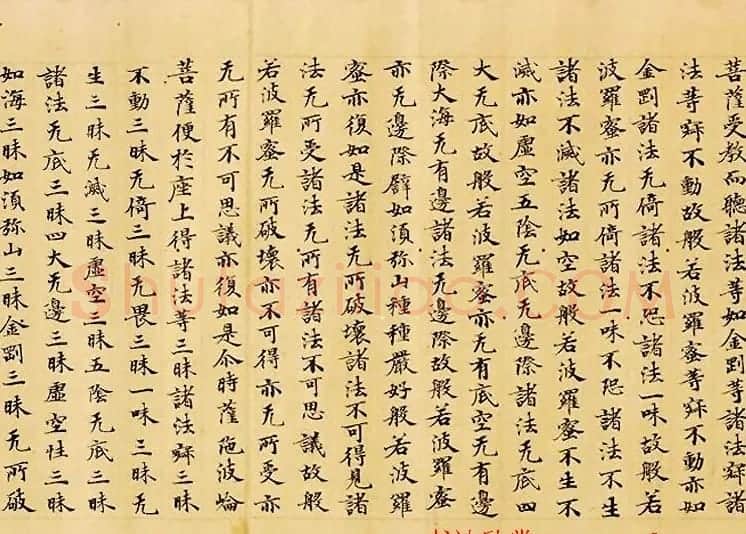 菩薩受教而聽諸法等如金剛等諸法寂諸
法等寂不動故般若波羅蜜等寂不動亦如
金剛諸法无倚諸法不恐諸法一味故般若
波羅蜜亦无所倚諸法一味不恐諸法不生
諸法不滅諸法如空故般若波羅蜜不生不
滅亦如虛空五陰无底无邊際諸法无底四
大无底故般若波羅蜜亦无有底空无有邊
際大海无有邊諸法无邊際故般若波羅蜜
亦无邊際譬如須弥山種種嚴好般若波羅
蜜亦復如是諸法无所破壞諸法不可得見諸
法无所受諸法无所有諸法不可思議故般
若波羅蜜无所破壞亦不可得亦无所受亦
无所有不可思議亦復如是尒時薩陁波崘
菩薩便於座上得諸法等三昧諸法寂三昧
不動三昧无倚三昧无畏三昧一味三昧无
生三昧无滅三昧虛空三昧五陰无底三昧
諸法无底三昧四大无邊三昧虛空性三昧
如海三昧如須弥山三昧金剛三昧无所破
Shufaziliao.COM